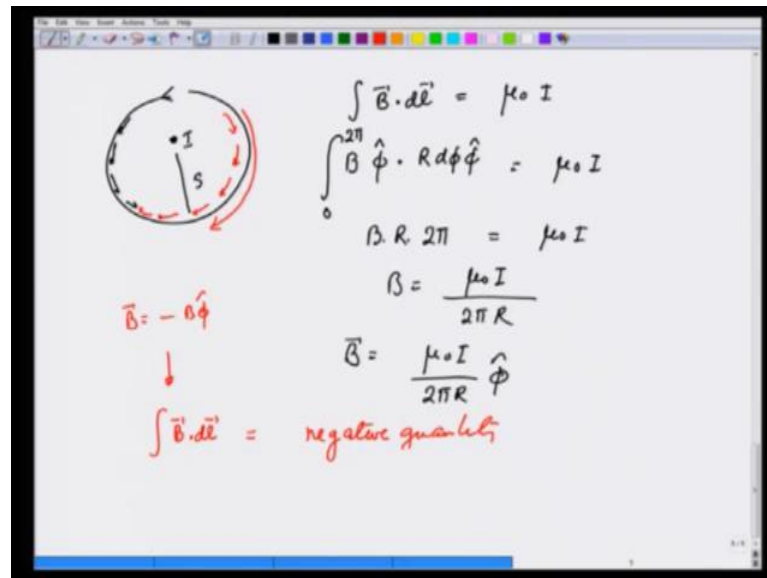 File Edit View Insert Actions Tools Help
∫ B⃗ · dl⃗ = μ₀ I
∫₀^2π B φ̂ · R dφ φ̂ = μ₀ I
B. R. 2π = μ₀ I
B = μ₀ I / 2π R
B⃗ = μ₀ I / 2π R φ̂
I
S
B⃗ = - B φ̂
↓
∫ B⃗ · dl⃗ = negative quantity